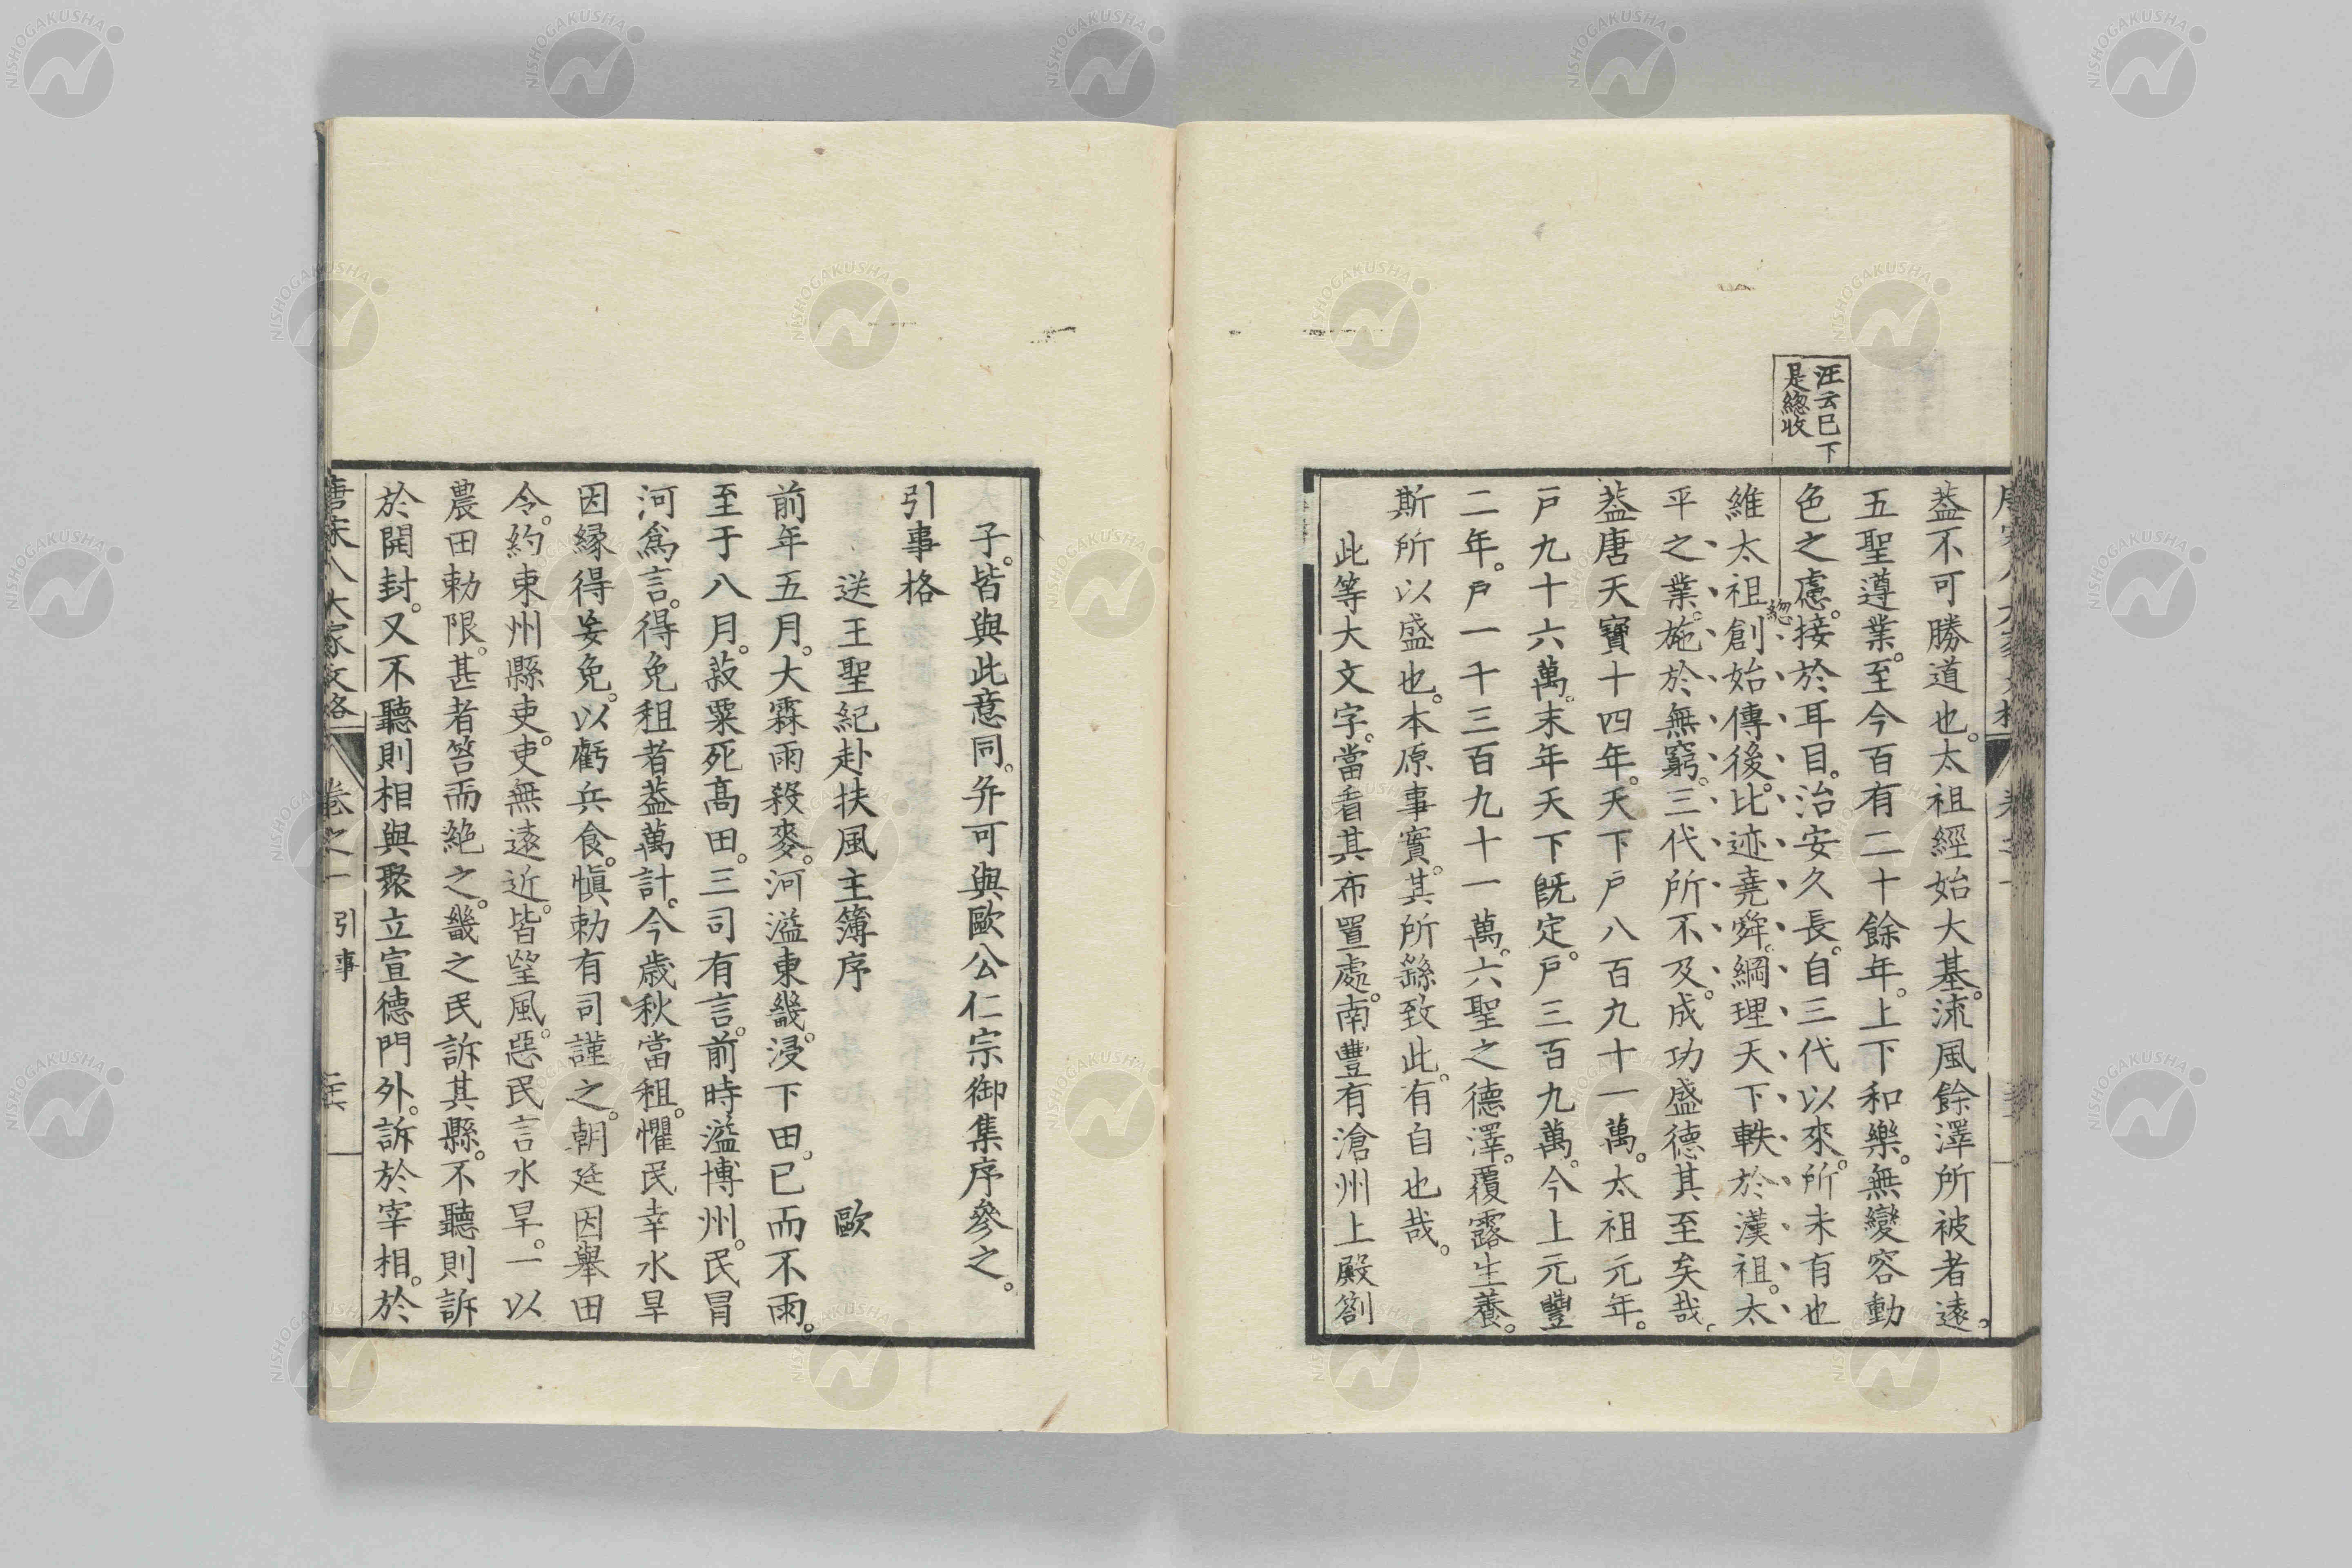 汪云已下
是總收
蓋不可勝道也。太祖經始大基。流風餘澤所被者遠。
五聖遵業。至今百有二十餘年。上下和樂。無變容動
色之慮。接於耳目。治安久長。自三代以來。所未有也
總
維太祖創始傳後。比迹堯舜。綱理天下軼於漢祖。太
平之業。施於無窮。三代所不及。成功盛德其至矣哉。
蓋唐天寶十四年。天下戶八百九十一萬。太祖元年。
戶九十六萬。末年天下旣定。戶三百九萬。今上元豐
二年。戶一千三百九十一萬。六聖之德澤。覆露生養。
斯所以盛也。本原事實。其所繇致此。有自也哉。
此等大文字。當看其布置處。南豐有滄州上殿劄
子。皆與此意同。弁可與歐公仁宗御集序參之。
引事格
送王聖紀赴扶風主簿序 歐
前年五月。大霖雨殺麥。河溢東畿。浸下田。已而不雨。
至于八月。菽粟死高田。三司有言。前時溢博州。民冒
河爲言。得免租者蓋萬計。今歲秋當租。懼民幸水旱
因緣得妄免。以虧兵食。愼勅有司謹之。朝廷因舉田
令。約束州縣吏。吏無遠近。皆望風。惡民言水旱。一以
農田勅限。甚者笞而絕之。畿之民訴其縣。不聽則訴
於開封。又不聽則相與聚立宣德門外。訴於宰相。於
唐宋八大家文格 卷之一 引事
NISHOGAKUSHA